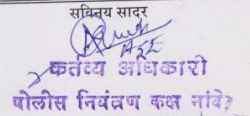 सविनय सादर
कर्तव्य अधिकारी
पोलीस नियंत्रण कक्ष नांदेड